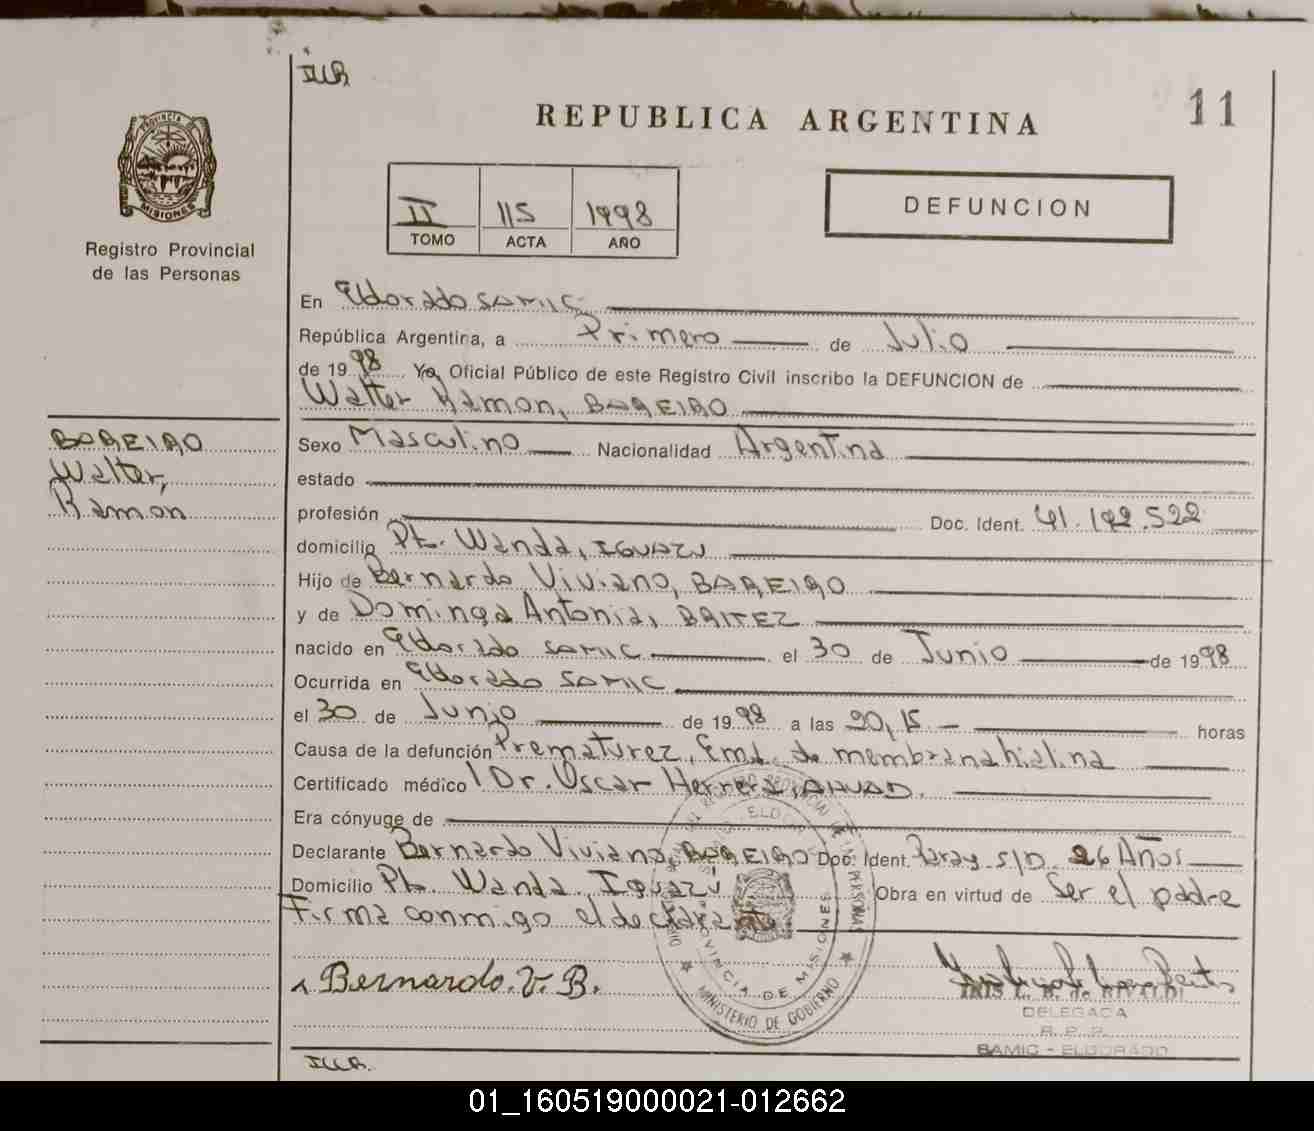 IUR
REPUBLICA ARGENTINA
11
PROVINCIA
MISIONES
Registro Provincial
de las Personas
II 115 1998
TOMO ACTA AÑO
DEFUNCION
En Eldorado SAMIC
República Argentina, a Primero de Julio
de 1998 Yo, Oficial Público de este Registro Civil inscribo la DEFUNCION de
Walter Ramon, BAREIRO
BAREIRO
Walter,
Ramon
Sexo Masculino Nacionalidad Argentina
estado
profesión Doc. Ident. 41.192.522
domicilio Pto. Wanda, IGUAZU
Hijo de Bernardo Viviano, BAREIRO
y de Dominga Antonia, BRITEZ
nacido en Eldorado SAMIC el 30 de Junio de 1998
Ocurrida en Eldorado SAMIC
el 30 de Junio de 1998 a las 20,15 - horas
Causa de la defunción Prematurez, Emd. de membrana hialina
Certificado médico Dr. Oscar Herrera, AHUAD.
Era cónyuge de
Declarante Bernardo Viviano, BAREIRO Doc. Ident. Paray s/D 26 Años
Domicilio Pto. Wanda. Iguazú Obra en virtud de Ser el padre
Firma conmigo el declarante
Bernardo. V. B.
PROVINCIA DE MISIONES
MINISTERIO DE GOBIERNO
DELEGADA
R. P. P.
SAMIC - ELDORADO
IUR.
01_160519000021-012662